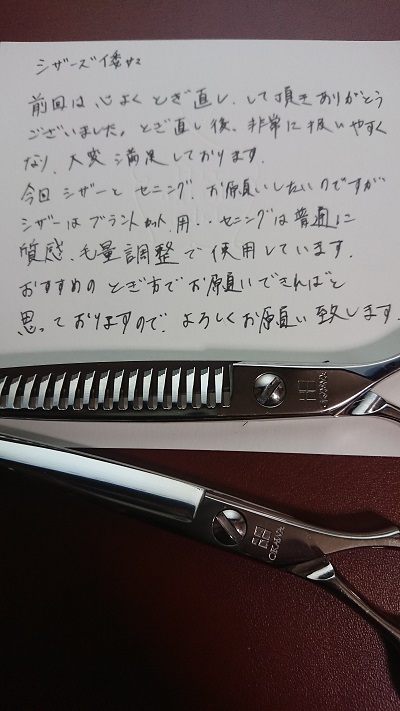 シザーズ倭さま
前回は心よくとぎ直し、して頂きありがとう
ございました。とぎ直し後、非常に扱いやすく
なり、大変満足しております。
今回シザーとセニング、お願いしたいのですが
シザーはブラントカット用・・セニングは普通に
質感、毛量調整で使用しています。
おすすめのとぎ方でお願いできればと
思っておりますので、よろしくお願い致します。
OKAWA
OKAWA